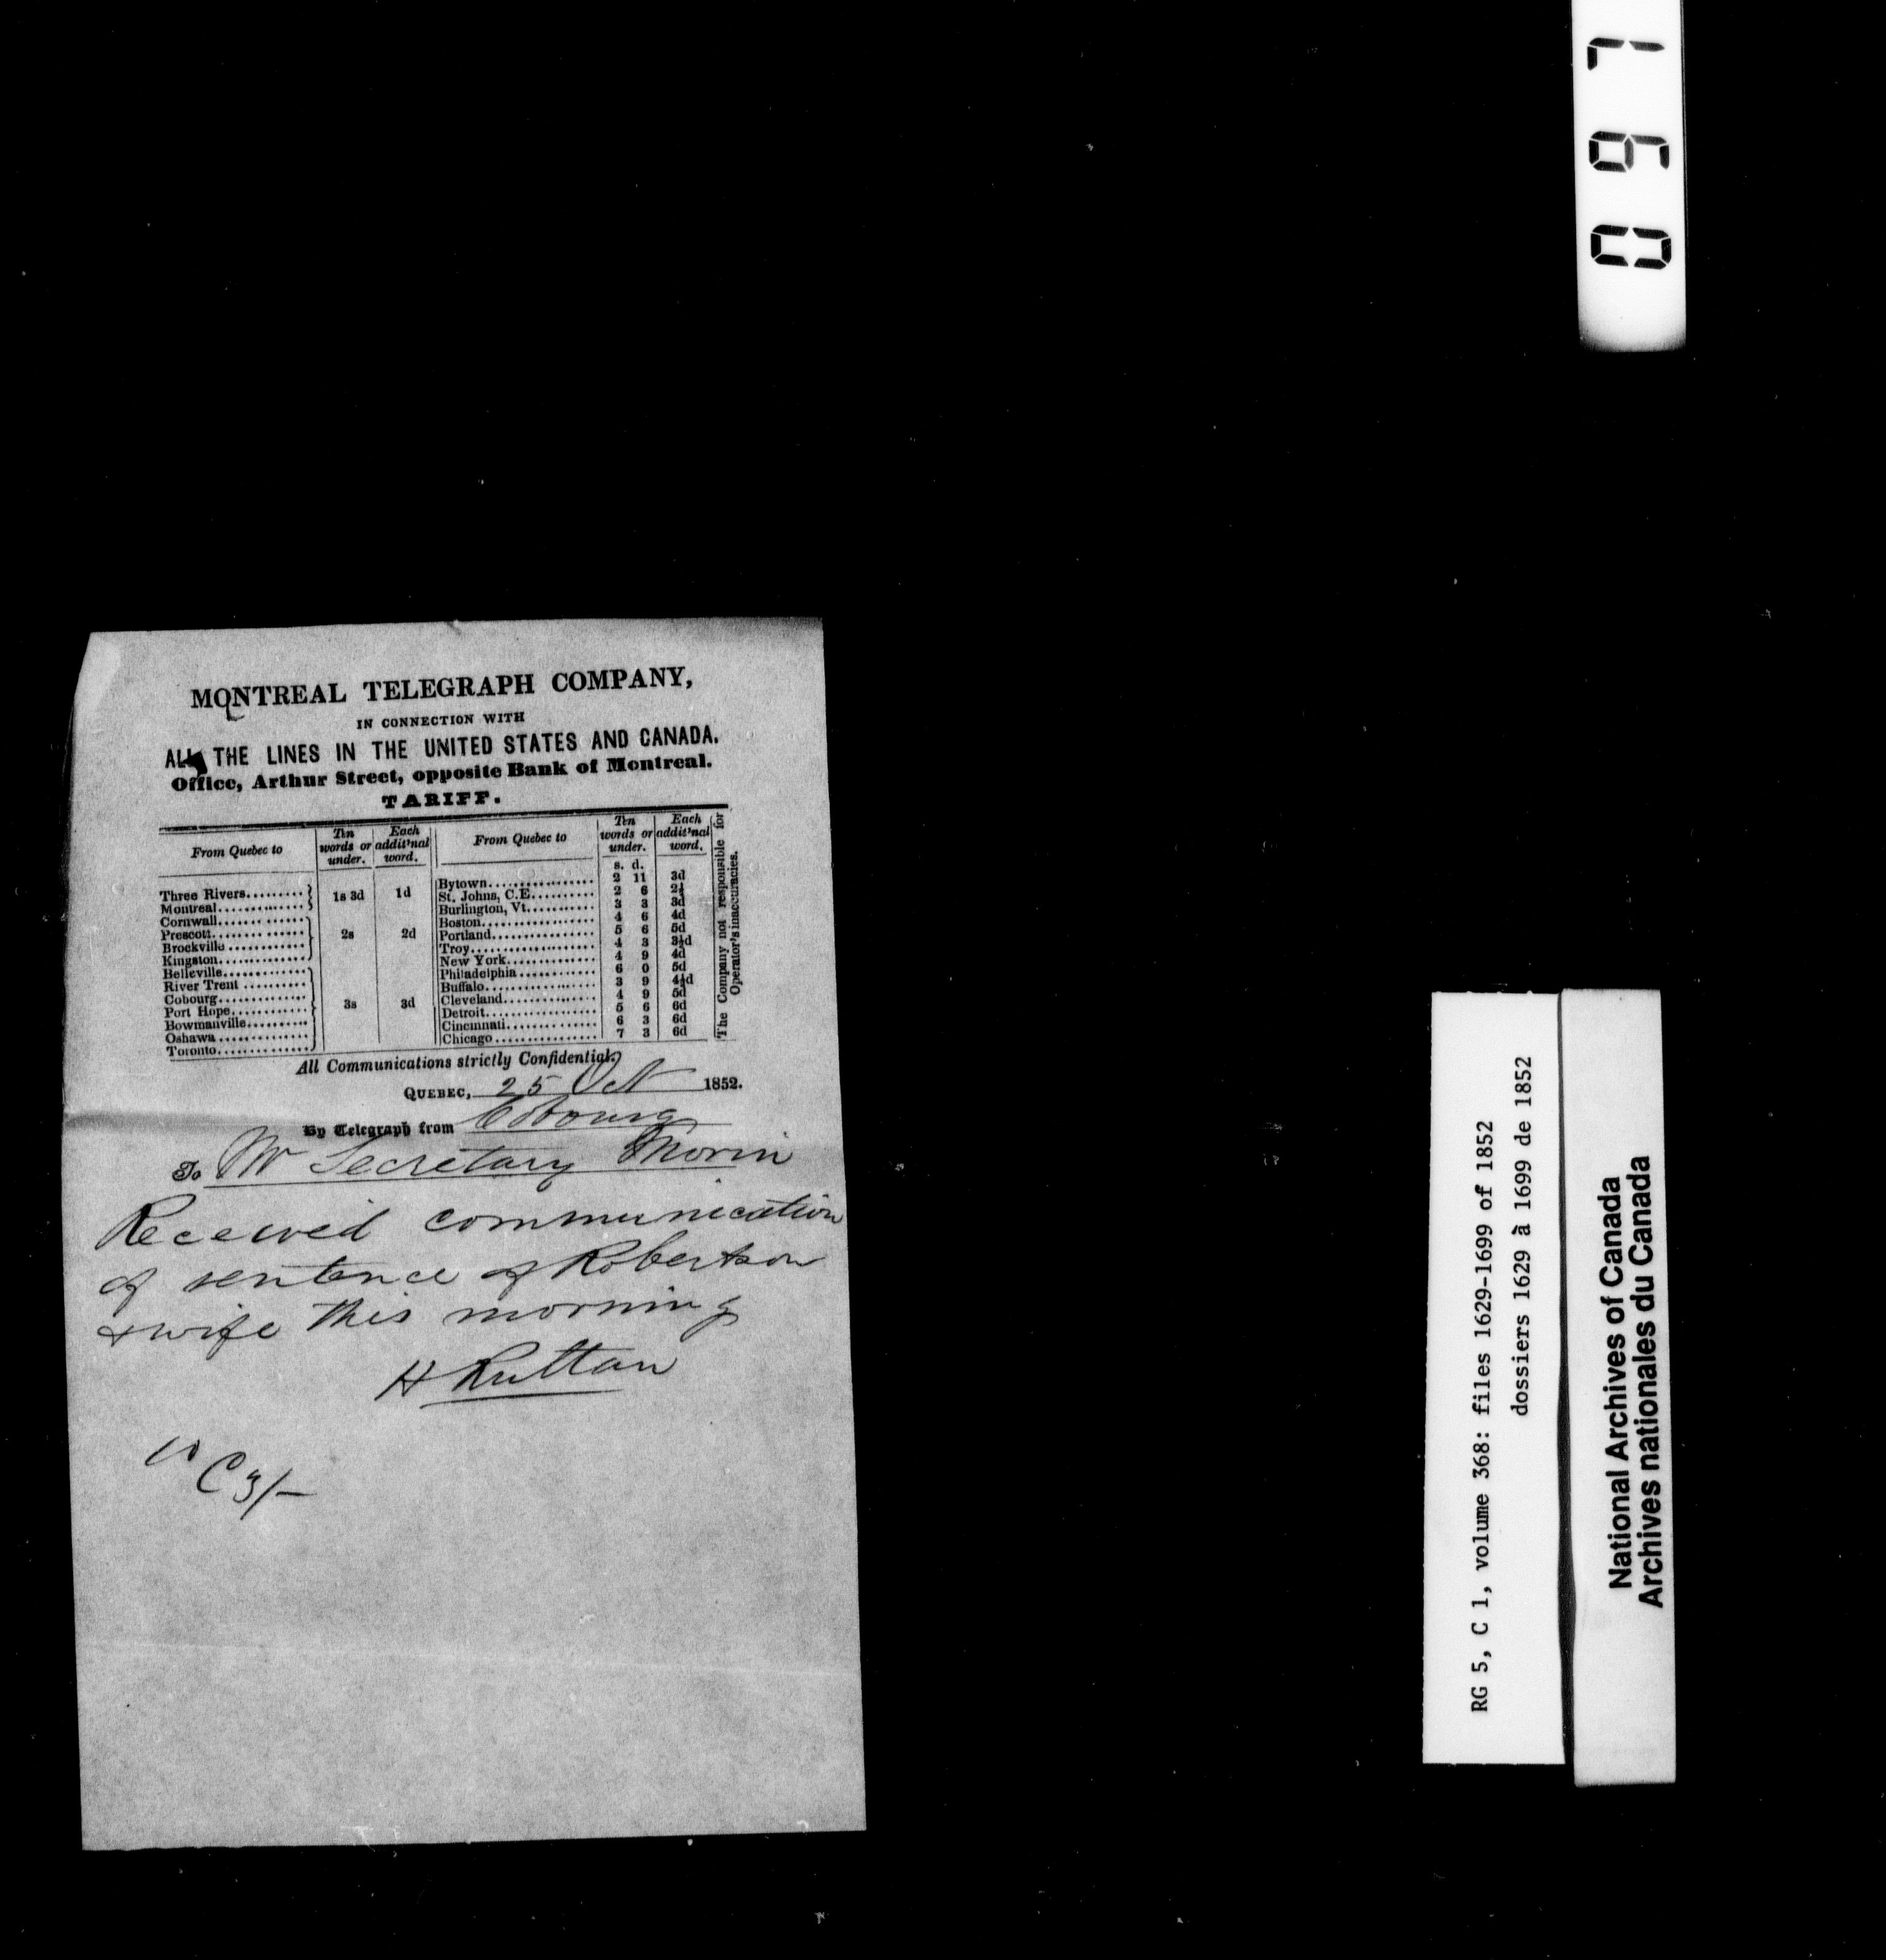 MONTREAL TELEGRAPH COMPANY,
IN CONNECTION WITH
ALL THE LINES IN THE UNITED STATES AND CANADA.
Office, Arthur Street, opposite Bank of Montreal.
TARIFF.
From Quebec to | Ten words or under. | Each addit'nal word. | From Quebec to | Ten words or under. | Each addit'nal word.
s. d.
Three Rivers
Montreal
1s 3d 1d
Cornwall
Prescott
Brockville
Kingston
2s 2d
Belleville
River Trent
Cobourg
Port Hope
Bowmanville
Oshawa
Toronto
3s 3d
Bytown 2 11 3d
St. Johns, C.E. 2 6 2½
Burlington, Vt. 3 3 3d
Boston 4 6 4d
Portland 5 6 5d
Troy 4 3 3½d
New York 4 9 4d
Philadelphia 6 0 5d
Buffalo 3 9 4½d
Cleveland 4 9 5d
Detroit 5 6 6d
Cincinnati 6 3 6d
Chicago 7 3 6d
The Company not responsible for
Operator's inaccuracies.
All Communications strictly Confidential.
QUEBEC, 25 Oct 1852.
By Telegraph from Cobourg
To Mr Secretary Morin
Received communication
of sentence of Robertson
& wife this morning
H Ruttan
C 3/-
097
RG 5, C 1, volume 368: files 1629-1699 of 1852
dossiers 1629 à 1699 de 1852
National Archives of Canada
Archives nationales du Canada